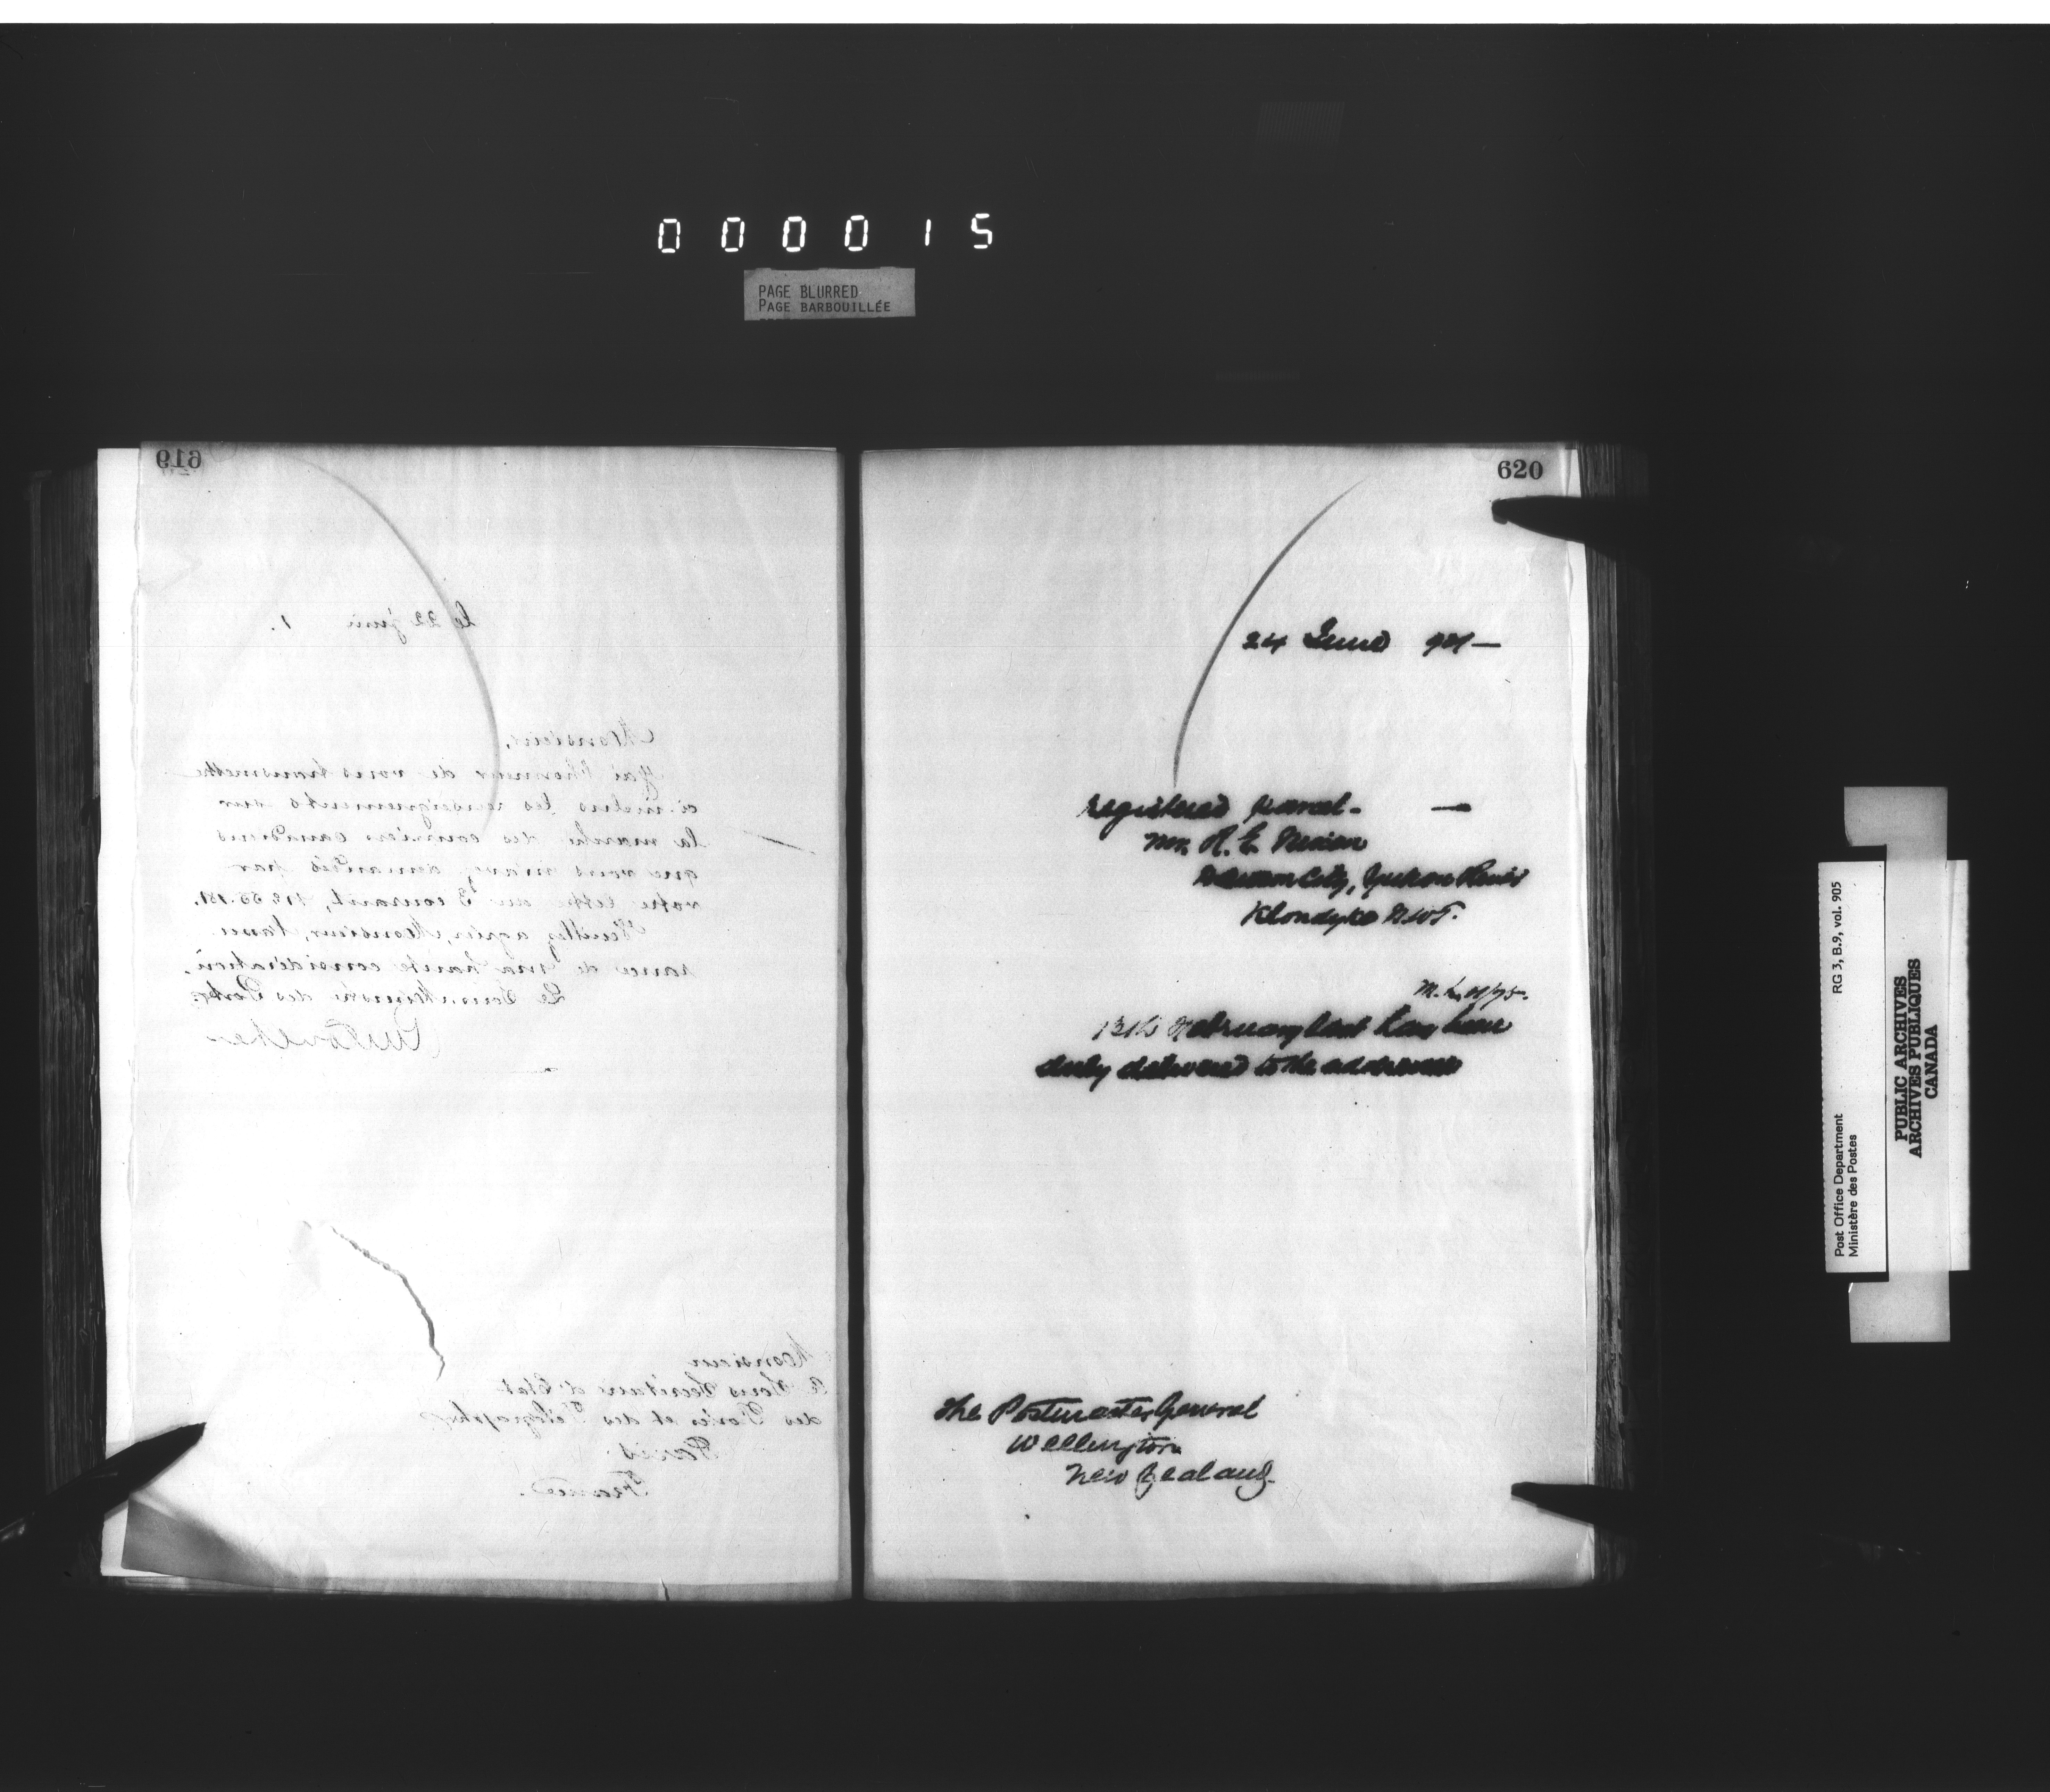 000015
PAGE BLURRED
PAGE BARBOUILLÉE
619
Le 22 juin 1.
Monsieur,
J'ai l'honneur de vous transmettre
ci-inclus les renseignements sur
la marche des courriers canadiens
que vous m'avez demandés par
votre lettre du 3 courant,
Veuillez agréer, Monsieur, l'assu
rance de ma haute considération.
Le Sous-Ministre des Postes
Monsieur
Le Sous Secrétaire d'Etat
des Postes et des Télégraphes
Paris
France.
620
24 June 901 —
registered parcel — —
Mr. R. E.
Dawson City, Yukon River
Klondyke N.W.T.
13th February last has been
duly delivered to the addressee
The Postmaster General
Wellington
New Zealand
Post Office Department
Ministère des Postes
RG 3, B.9, vol. 905
PUBLIC ARCHIVES
ARCHIVES PUBLIQUES
CANADA